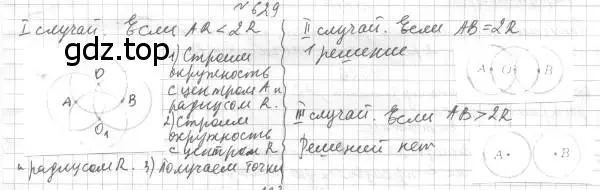 № 629
I случай. Если AR < 2R
1) Строим
окружность
с центром A и
радиусом R.
2) Строим
окружность
с центром R
и радиусом R. 3) Получаем точки
O
A
B
O₁
II случай. Если AB=2R
1 решение
A O B
III случай. Если AB>2R
Решений нет
A B
gdz.top